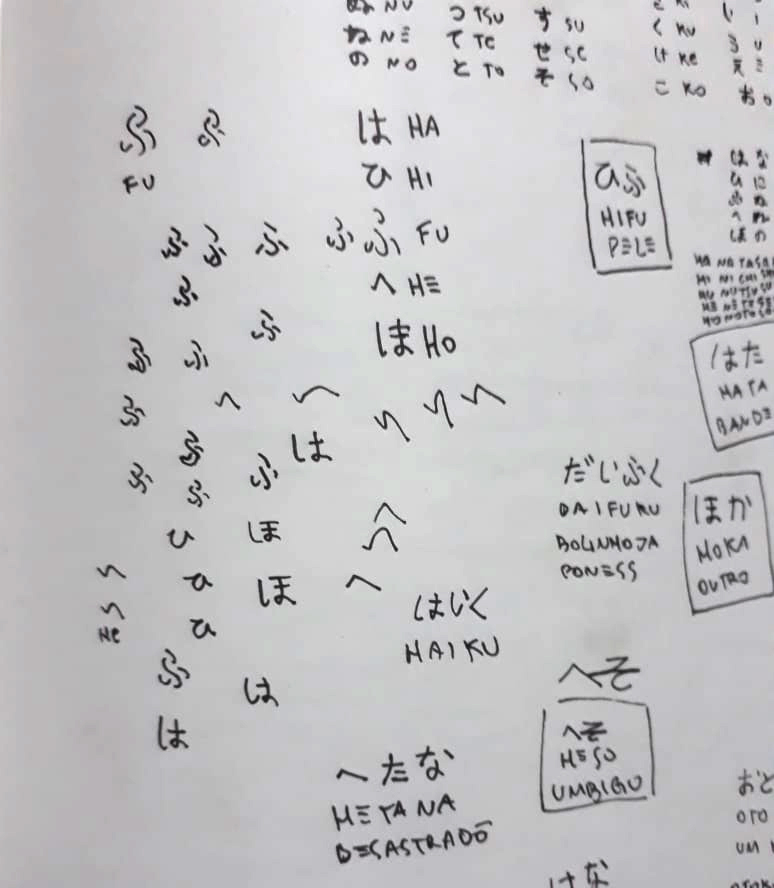 NU つ TSU す SU く KU
ね NE て TE せ SE け KE
の NO と TO そ SO こ KO お
ふ ふ は HA
FU ひ HI
ふ ふ ふ ふ ふ FU
ふ へ HE
ふ ほ HO
ふ ふ
ふ へ へ へ へ へ
ふ は
ふ ふ ふ
ひ ほ へ
へ へ
へ ひ ほ へ
へ ひ
HE
ふ は
は
ひふ
HIFU
PELE
はな
ひに
ふぬ
へね
ほの
はた
HATA
BANDE
だいふく
DAIFUKU
BOLINHOJA
PONESS
ほか
HOKA
OUTRO
はいく
HAIKU
へそ
へそ
HESO
UMBIGU
へたな
HETANA
DESASTRADO
おと
OTO
UM
はな